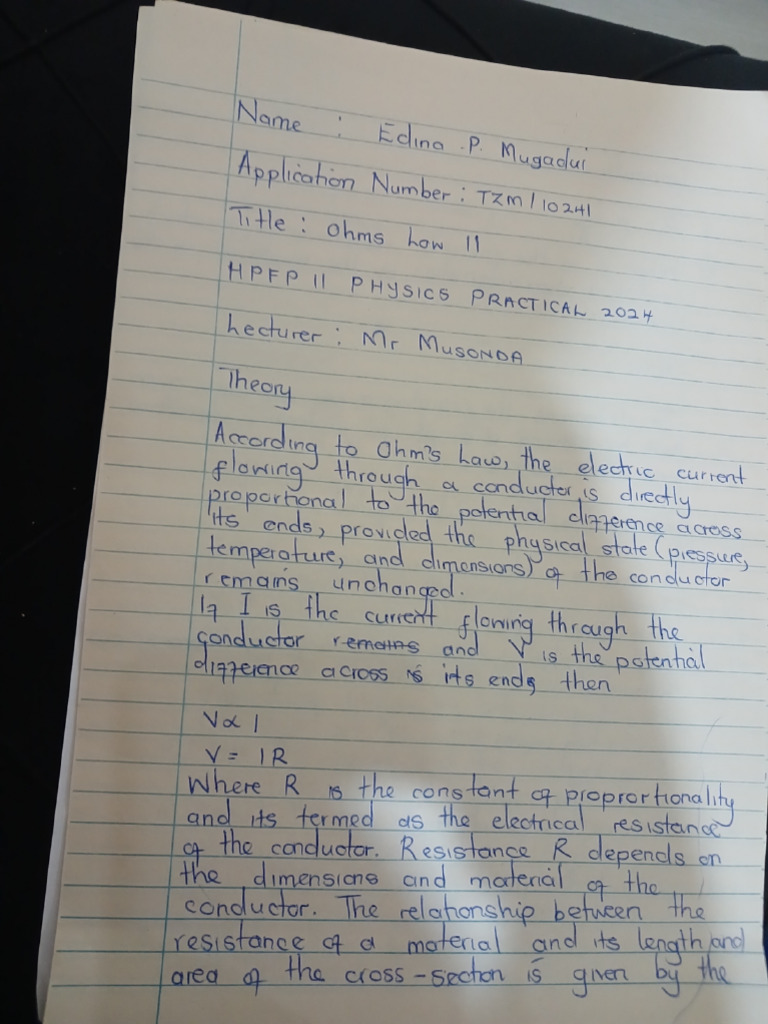 Name : Edina .P. Mugadui
Application Number : TZM/10241
Title : Ohms Low II
HPFP II PHYSICS PRACTICAL 2024
Lecturer : Mr MUSONDA
Theory
According to Ohm's Law, the electric current
flowing through a conductor is directly
proportional to the potential difference across
its ends, provided the physical state (pressure,
temperature, and dimensions) of the conductor
remains unchanged.
If I is the current flowing through the
conductor remains and V is the potential
difference across is its ends, then
V∝ I
V = IR
Where R is the constant of proprortionality
and its termed as the electrical resistance
of the conductor. Resistance R depends on
the dimensions and material of the
conductor. The relationship between the
resistance of a material and its length and
area of the cross-section is given by the